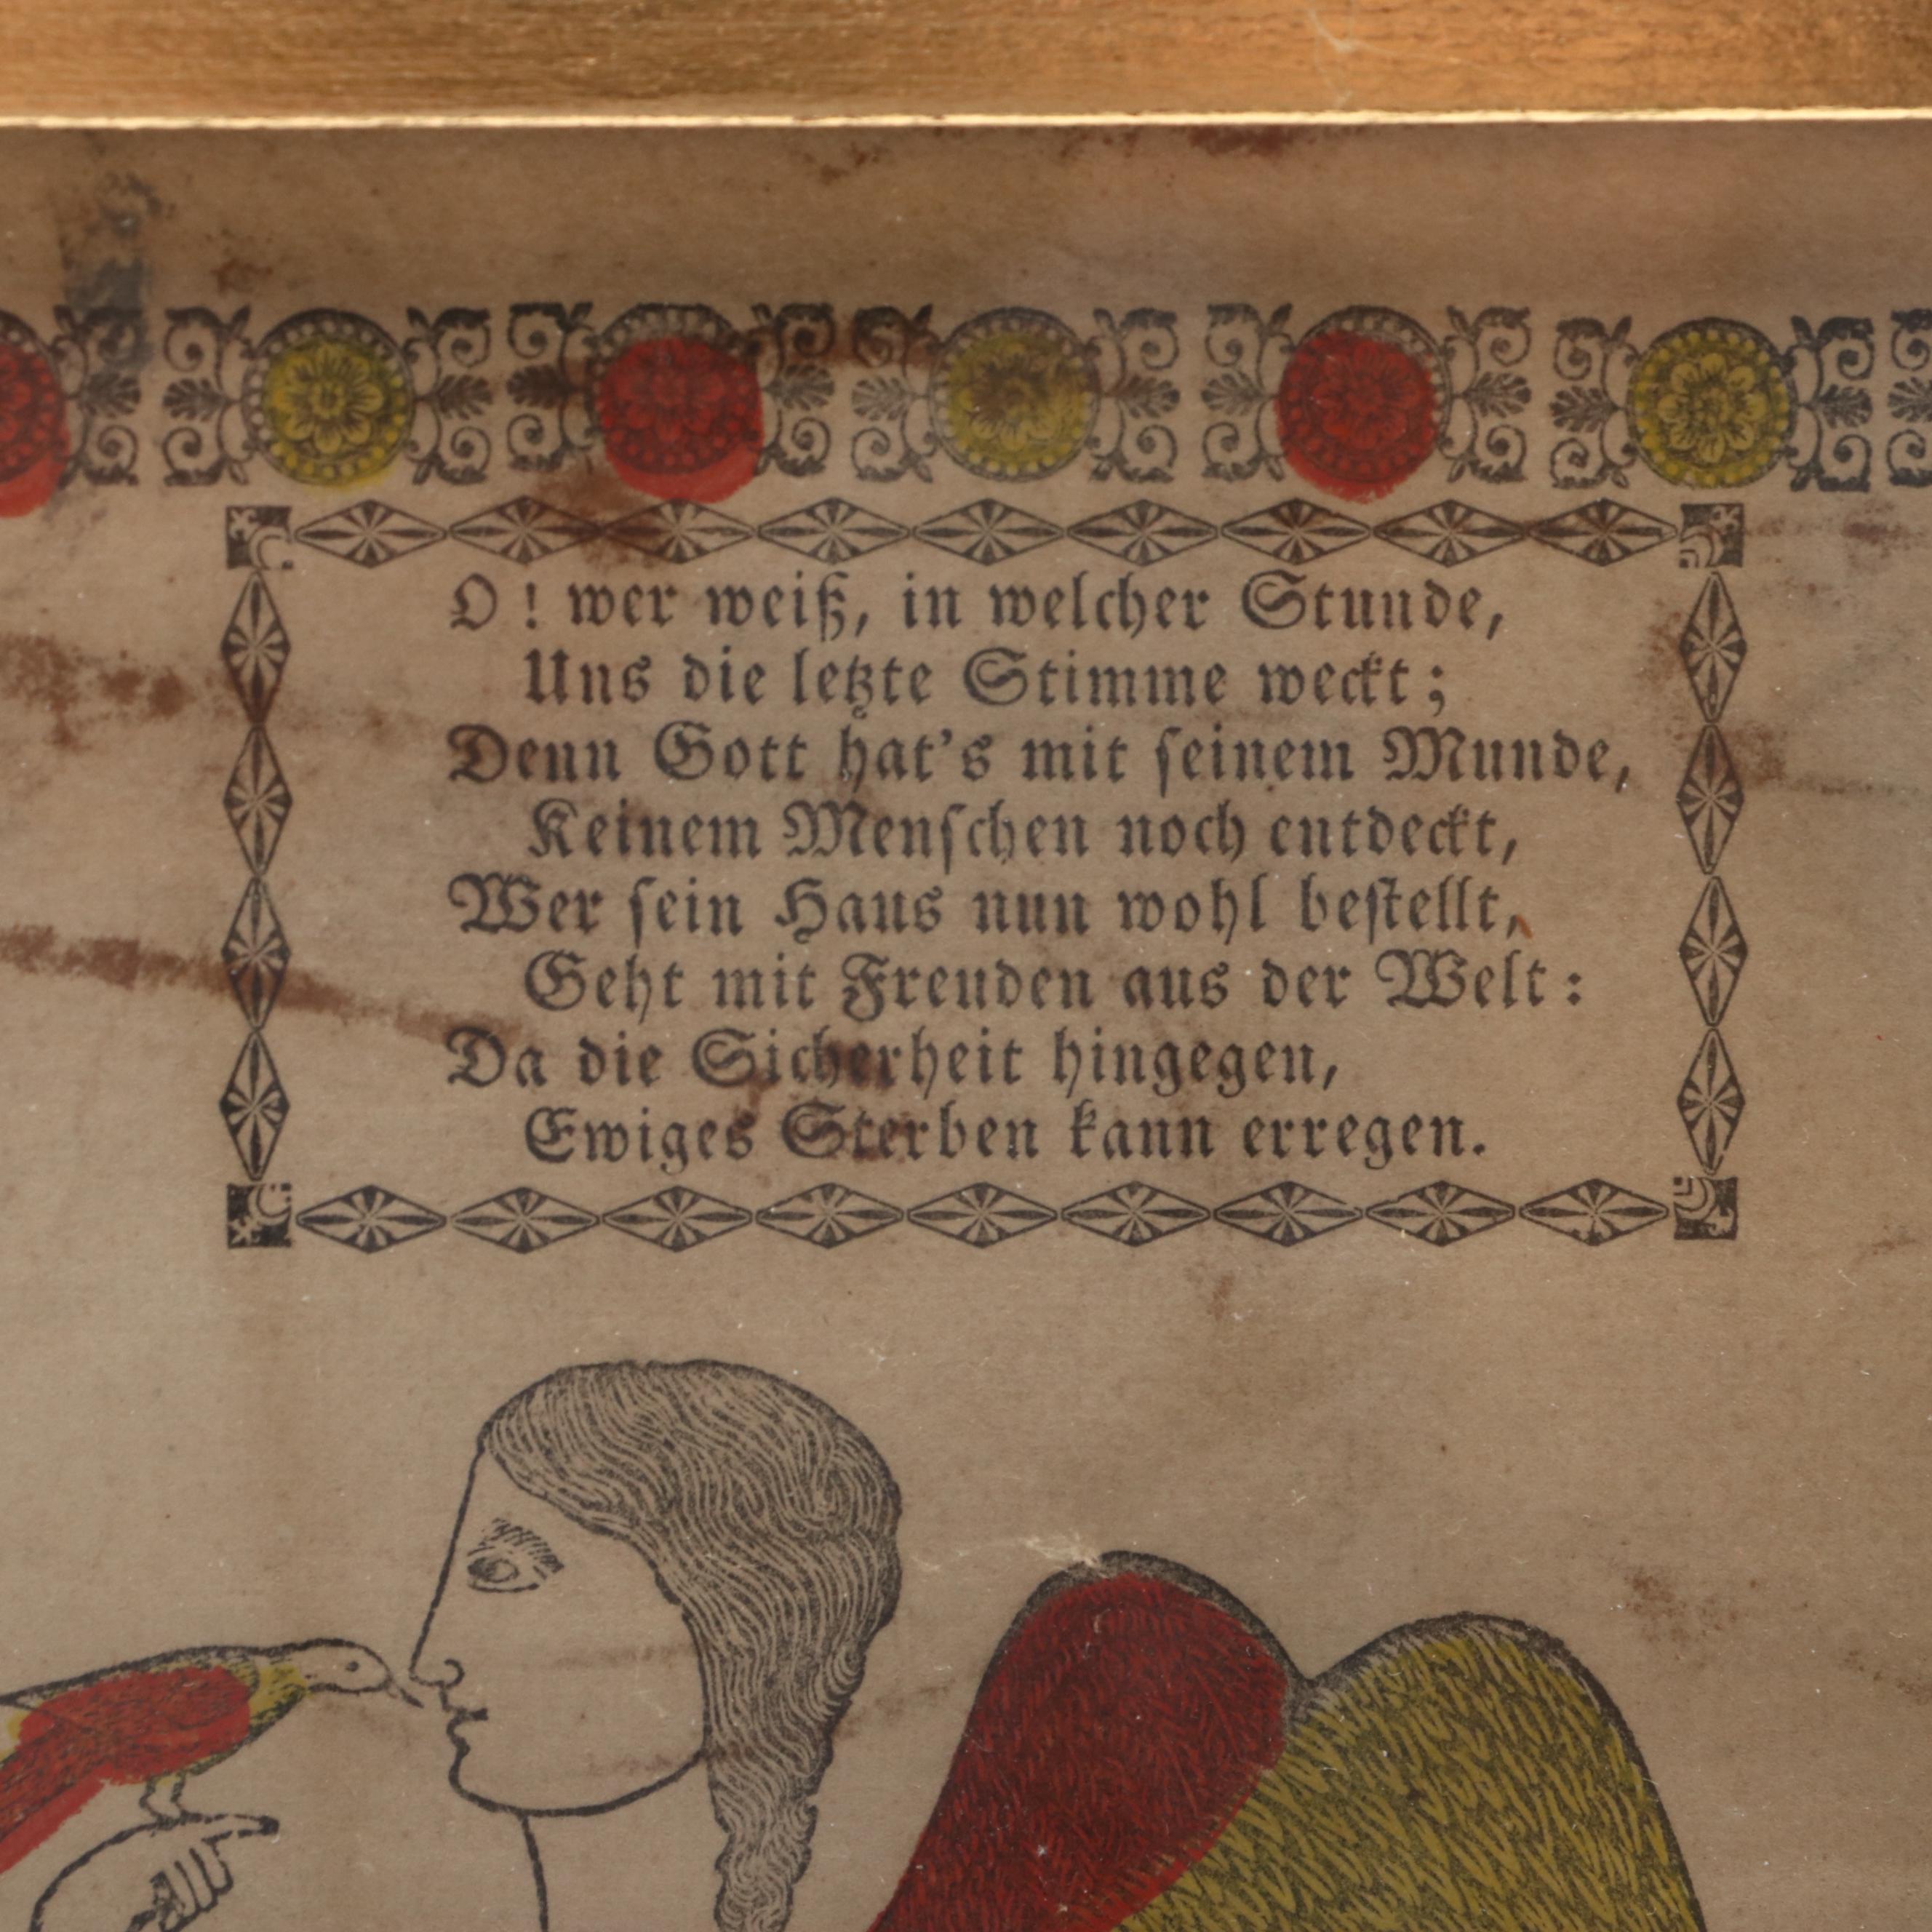 O! wer weiß, in welcher Stunde,
Uns die letzte Stimme weckt;
Denn Gott hat's mit ſeinem Munde,
Keinem Menſchen noch entdeckt,
Wer ſein Haus nun wohl beſtellt,
Geht mit Freuden aus der Welt:
Da die Sicherheit hingegen,
Ewiges Sterben kann erregen.